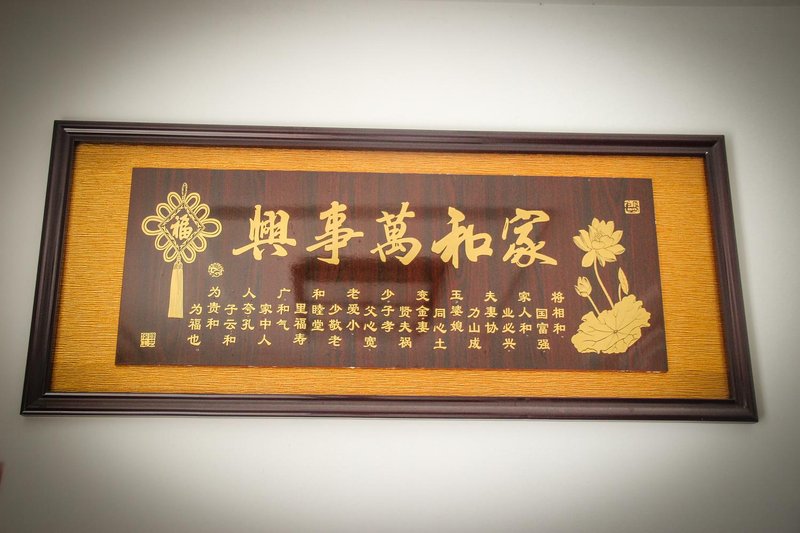 家和萬事興
将相和
国富强
家人和
业必兴
夫妻协
力山成
玉婆媳
同心土
变金妻
贤夫祸
少子孝
父心宽
老爱小
少敬老
和睦堂
里福寿
广和气
家中人
人夸孔
子云和
为贵和
为福也
福